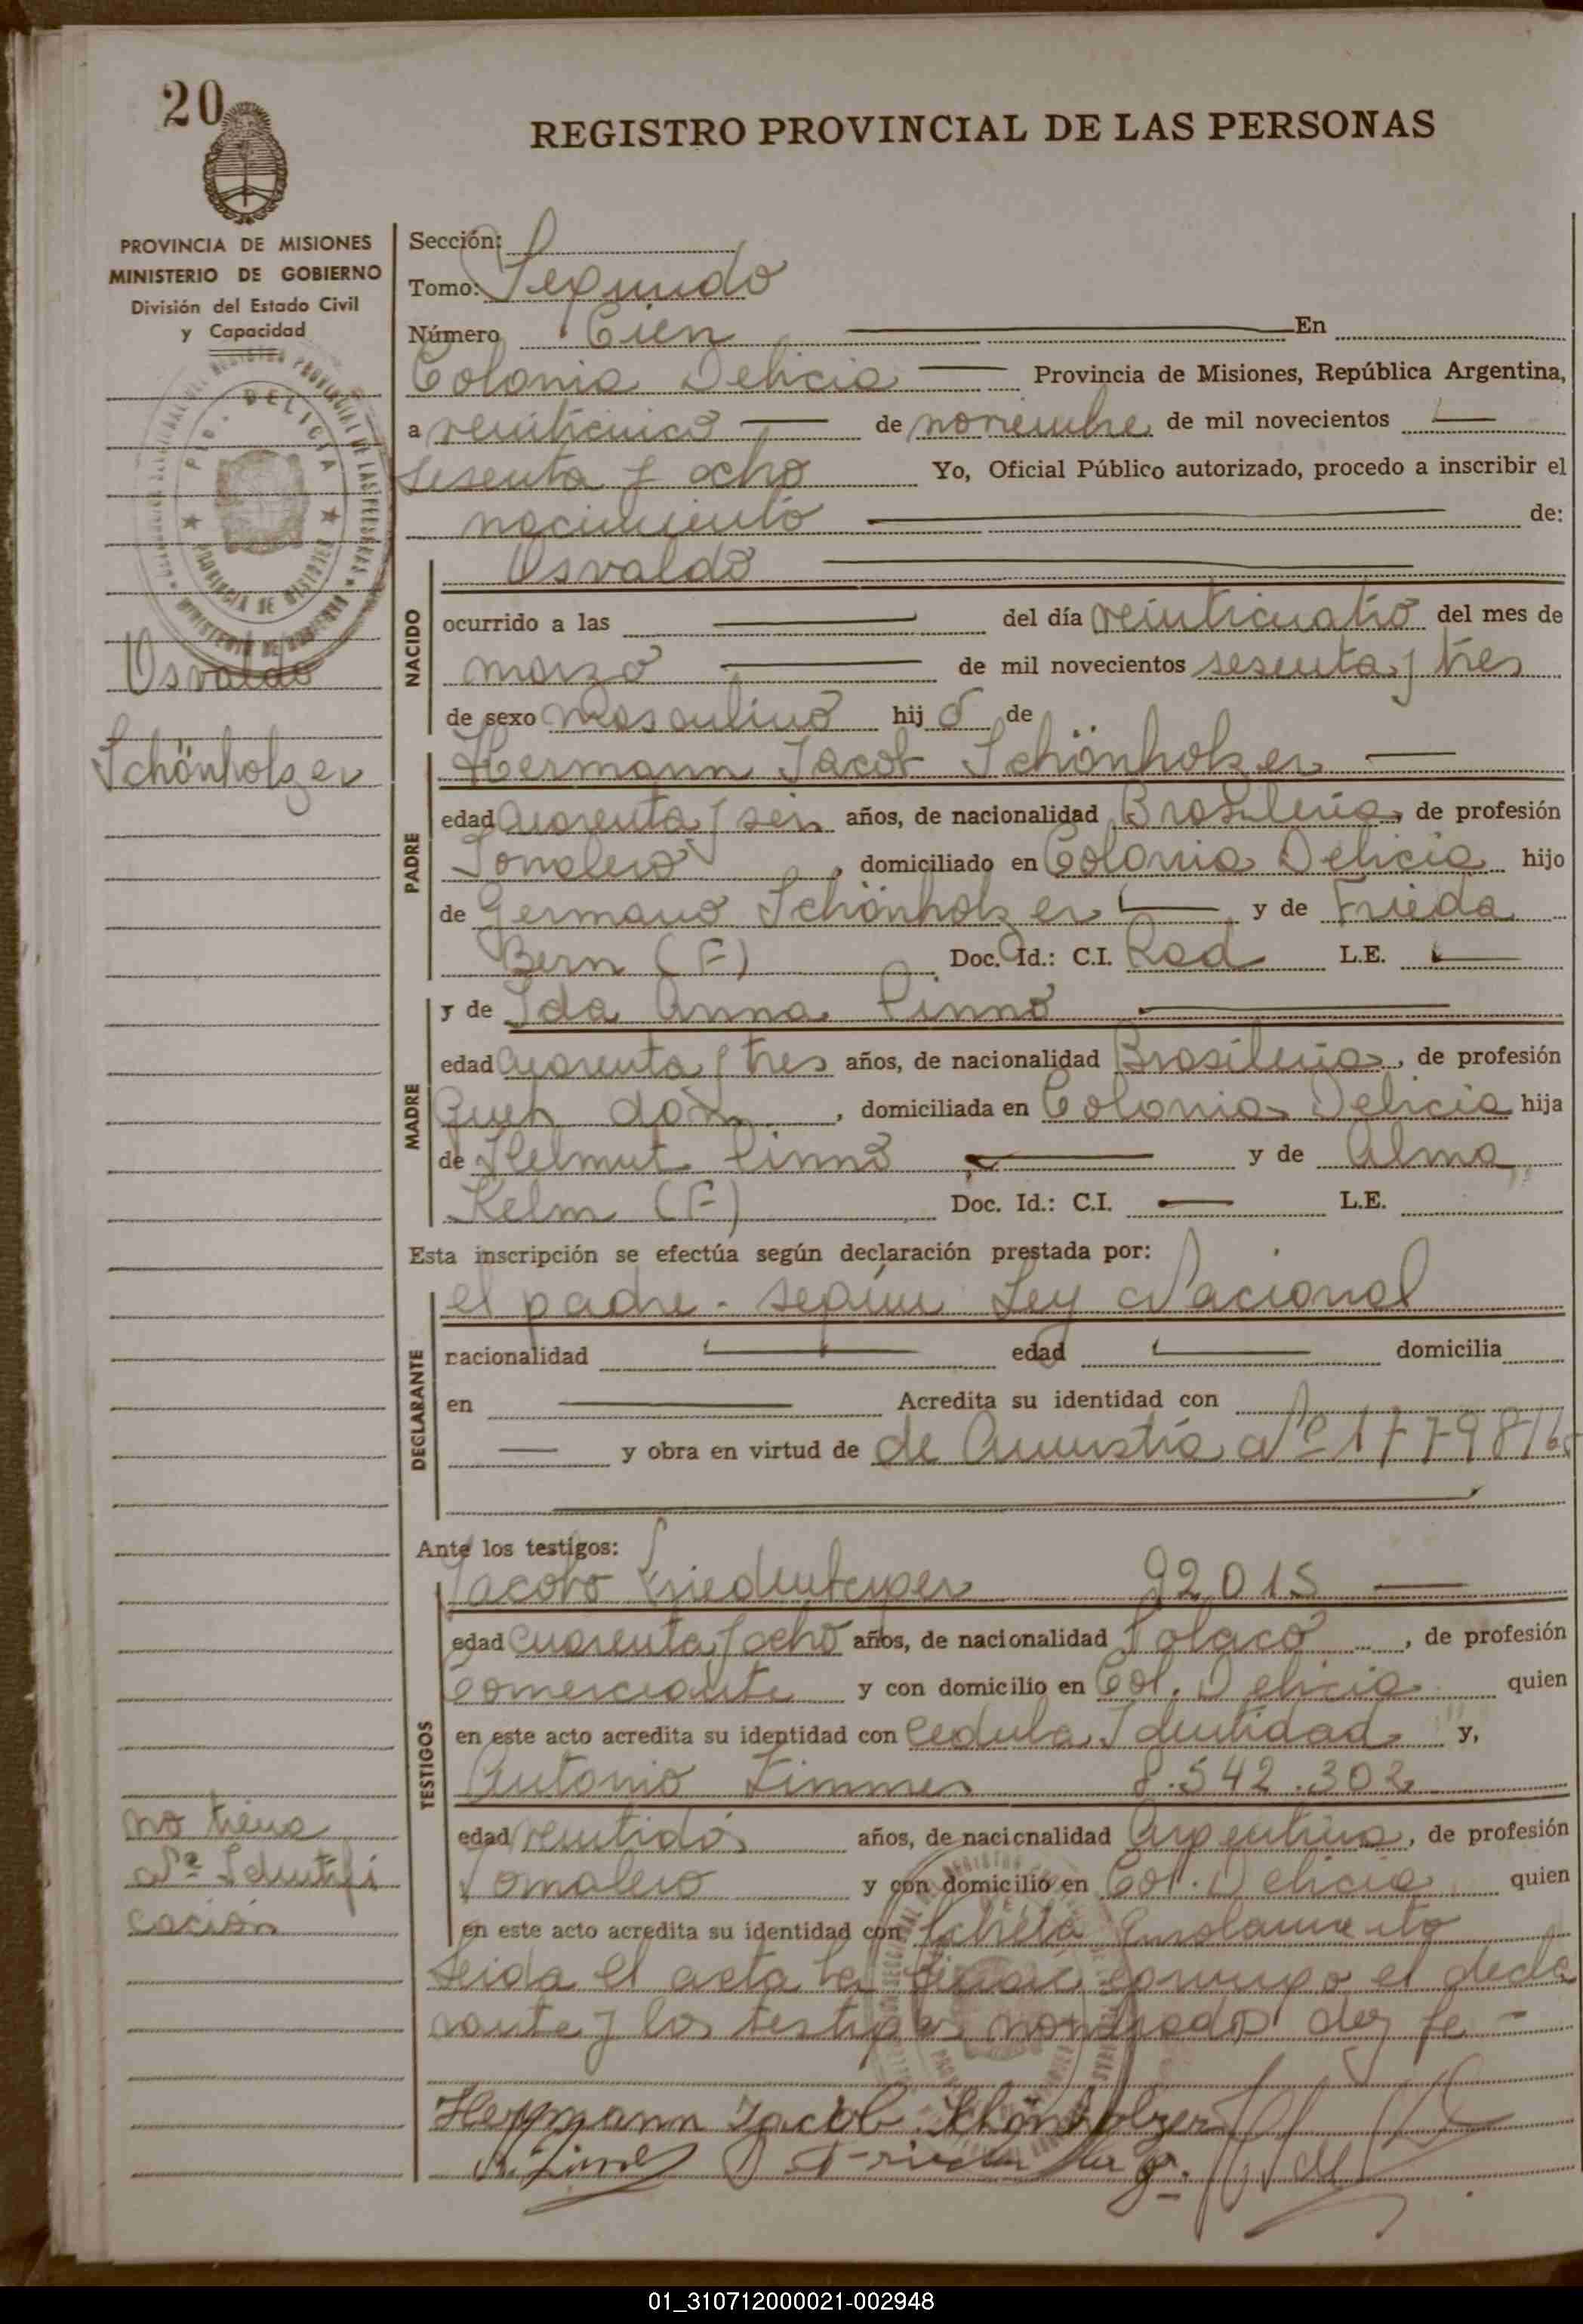 20
REGISTRO PROVINCIAL DE LAS PERSONAS
PROVINCIA DE MISIONES
MINISTERIO DE GOBIERNO
División del Estado Civil
y Capacidad
Sección:
Tomo: Segundo
Número Cien En
Colonia Delicia Provincia de Misiones, República Argentina,
a veinticinco de noviembre de mil novecientos
sesenta y ocho Yo, Oficial Público autorizado, procedo a inscribir el
nacimiento de:
Osvaldo
Schönholzer
NACIDO
Osvaldo
ocurrido a las del día veinticuatro del mes de
marzo de mil novecientos sesenta y tres
de sexo masculino hijo de
PADRE
Hermann Jacob Schönholzer
edad cuarenta y seis años, de nacionalidad Brasileria, de profesión
Jornalero, domiciliado en Colonia Delicia hijo
de Germano Schönholzer y de Frieda
Bern (F) Doc. Id.: C.I. Rad L.E.
MADRE
y de Ida Anna Pinno
edad cuarenta y tres años, de nacionalidad Brasileria, de profesión
Queh. dom., domiciliada en Colonia Delicia hija
de Helmut Pinno y de Alma
Kelm (F) Doc. Id.: C.I. L.E.
Esta inscripción se efectúa según declaración prestada por:
DECLARANTE
el padre - según Ley Nacional
nacionalidad edad domicilia
en Acredita su identidad con
y obra en virtud de de Amnistía Nº 17798/68
Ante los testigos:
TESTIGOS
Jacobo 92.015
edad cuarenta y ocho años, de nacionalidad Polaco, de profesión
Comerciante y con domicilio en Col. Delicia quien
en este acto acredita su identidad con Cedula Identidad y,
Antonio Zimmer 8.542.302
edad veintidos años, de nacionalidad Argentina, de profesión
Jornalero y con domicilio en Col. Delicia quien
en este acto acredita su identidad con
no tiene
Nº Identifi
cación
Leida el acta la firman conmigo el decla
rante y los testigos nombrados doy fe
Hermann Jacob Schönholzer
01_310712000021-002948